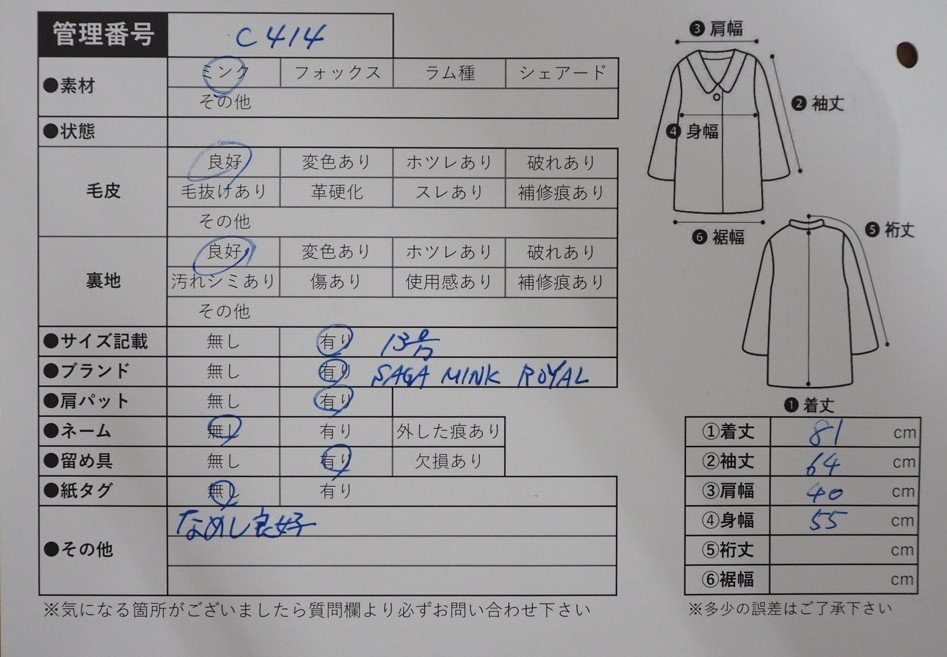 管理番号 C414
●素材 ミンク フォックス ラム種 シェアード
その他
●状態
毛皮 良好 変色あり ホツレあり 破れあり
毛抜けあり 革硬化 スレあり 補修痕あり
その他
裏地 良好 変色あり ホツレあり 破れあり
汚れシミあり 傷あり 使用感あり 補修痕あり
その他
●サイズ記載 無し 有り 13号
●ブランド 無し 有り SAGA MINK ROYAL
●肩パット 無し 有り
●ネーム 無し 有り 外した痕あり
●留め具 無し 有り 欠損あり
●紙タグ 無し 有り
●その他 なめし良好
※気になる箇所がございましたら質問欄より必ずお問い合わせ下さい
❸肩幅
❷袖丈
❹身幅
❻裾幅
❺裄丈
❶着丈
①着丈 81 cm
②袖丈 64 cm
③肩幅 40 cm
④身幅 55 cm
⑤裄丈 cm
⑥裾幅 cm
※多少の誤差はご了承下さい